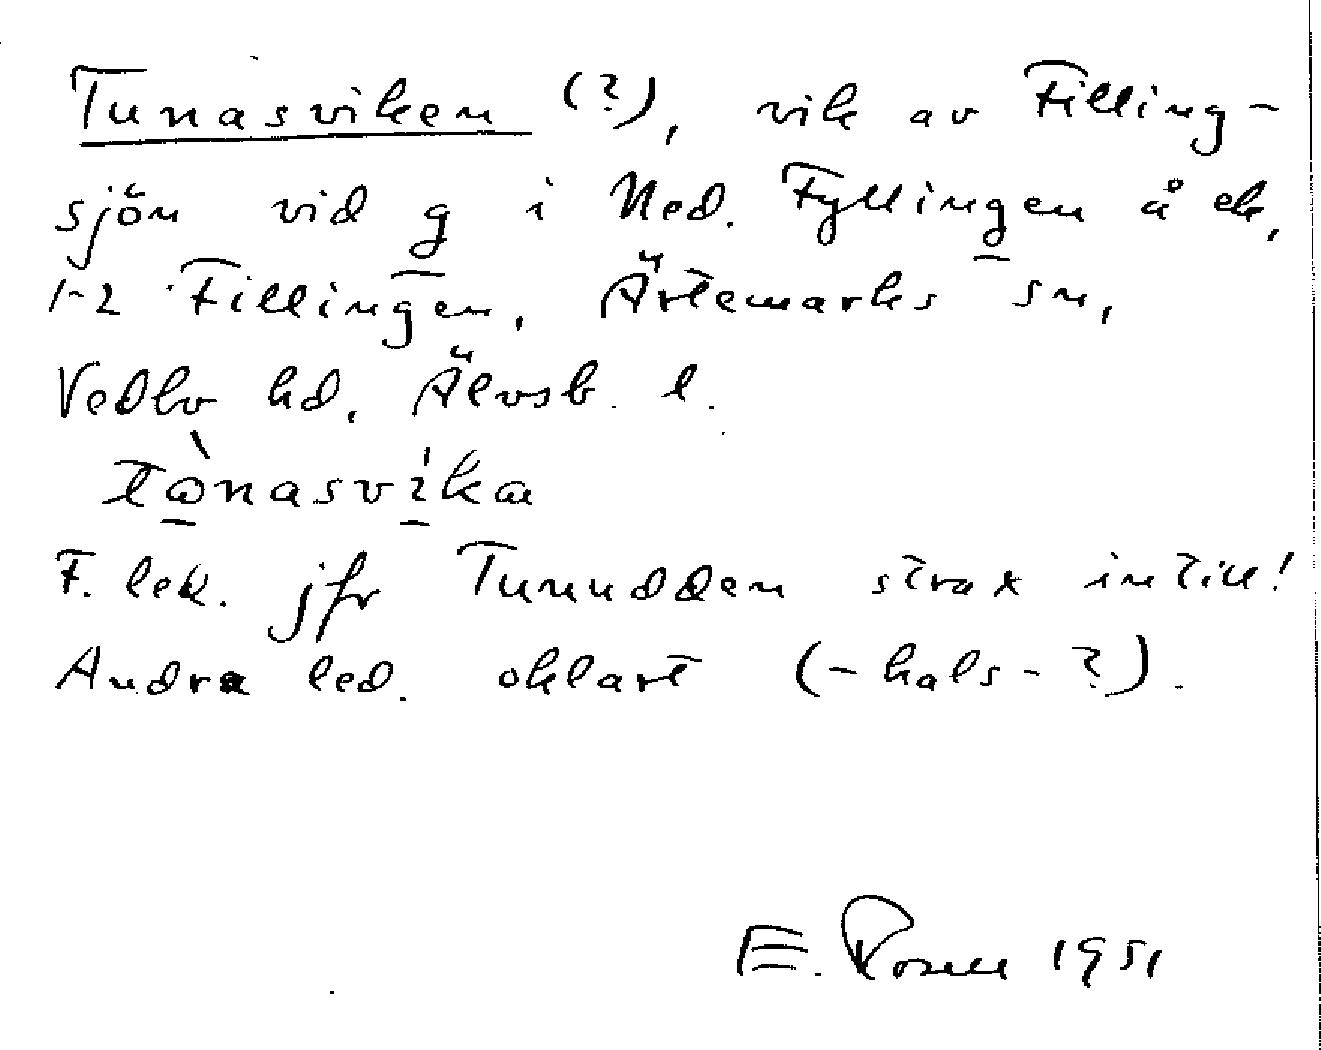 Tunasviken (?), vik av Filling-
sjön vid g i Ned. Fyllingen å ek,
1-2 Fillingen, Ärtemarks sn,
Vedbo hd, Älvsb. l.
tɷ̀nasvíka
F. led. jfr Tunudden strax intill!
Andra led. oklart (-hals-?).
E. Rosen 1951